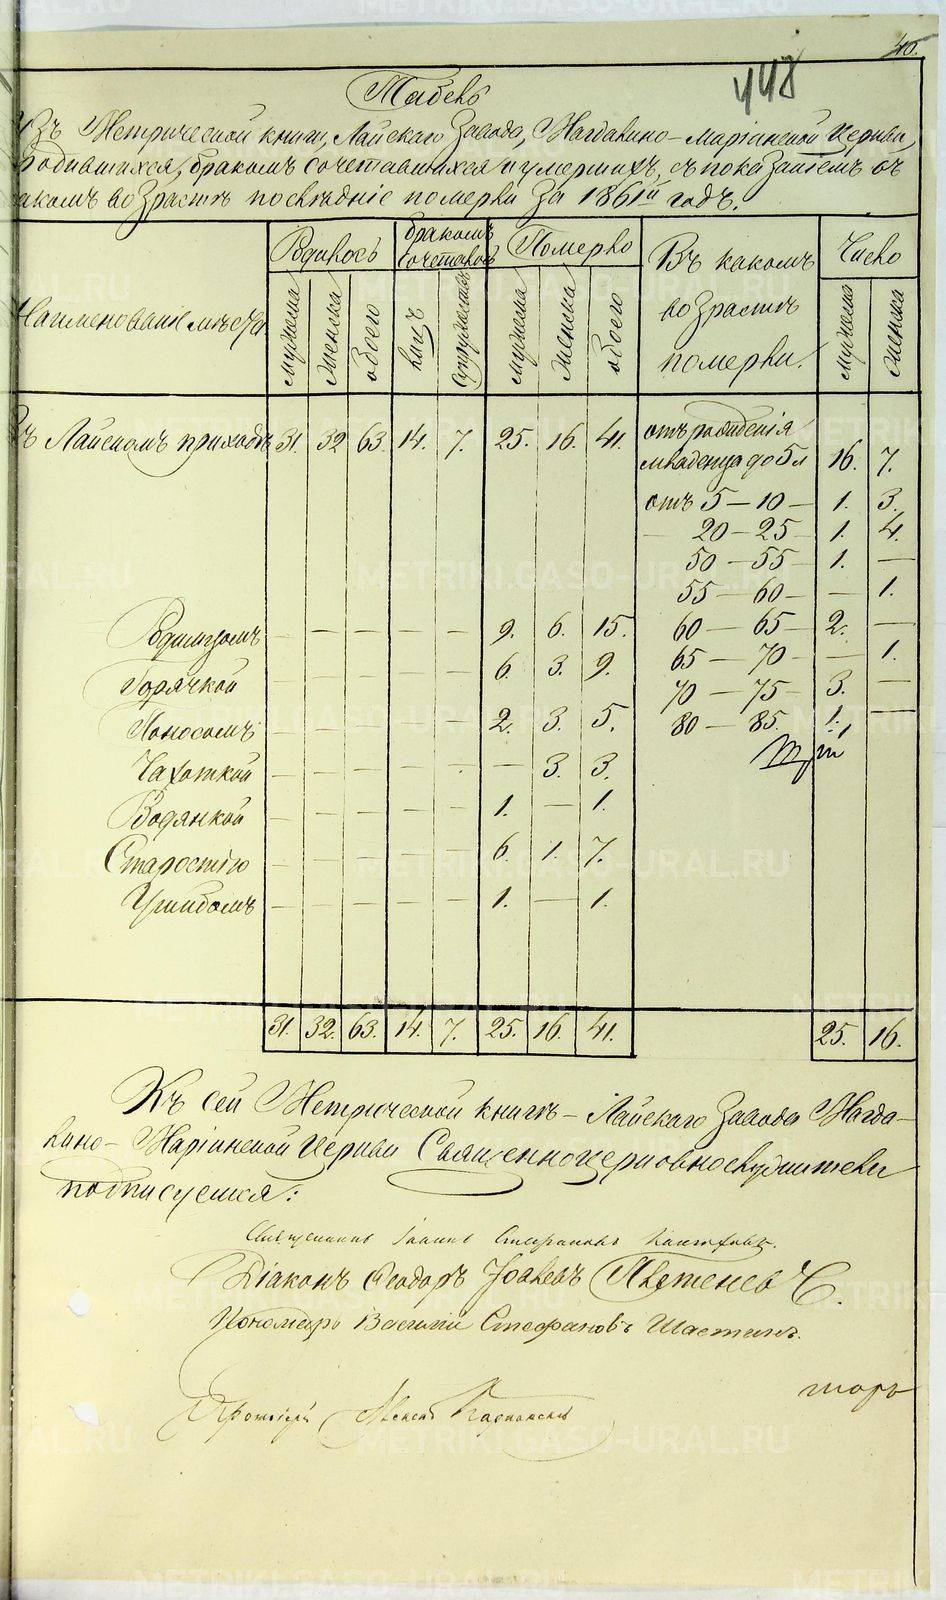 40.
448
Табель
Изъ Метрической книги, Лайскаго Завода, Магдалино-Маріинской Церкви
родившихся, бракомъ сочетавшихся и умершихъ, съ показаніемъ въ
какомъ возрастѣ послѣдніе померли За 1861й годъ.
Наименованіе мѣста
Родилось
Бракомъ сочеталось
Померло
Въ какомъ возрастѣ померли.
Число
мужеска женска обоего лицъ супружествъ мужеска женска обоего мужеска женска
Въ Лайскомъ приходѣ 31. 32 63. 14. 7. 25. 16. 41. отъ рожденія
младенца до 5 л 16. 7.
отъ 5 — 10 — 1. 3.
— 20 — 25 — 1. 4.
50 — 55 — 1. —
55 — 60 — — 1.
Родимцомъ — — — — — 9. 6. 15. 60 — 65 — 2. —
Горячкой — — — — — 6. 3. 9. 65 — 70 — — 1.
70 — 75 — 3. —
Поносомъ — — — — — 2. 3. 5. 80 — 85. 1. —
Чахоткой — — — — — — 3. 3.
Водянкой — — — — — 1. — 1.
Старостію — — — — — 6. 1. 7.
Ушибомъ — — — — — 1. — 1.
31. 32. 63. 14. 7. 25. 16. 41. 25. 16.
Къ сей Метрической книгѣ — Лайскаго Завода Магда-
лино-Маріинской Церкви Священноцерковнослужители
подписуемся:
Священникъ Іоаннъ Стефановъ
Діаконъ Ѳеодоръ
Пономарь Василій Стефановъ Шастинъ.
Протоіерей
METRIKI.GASO-URAL.RU